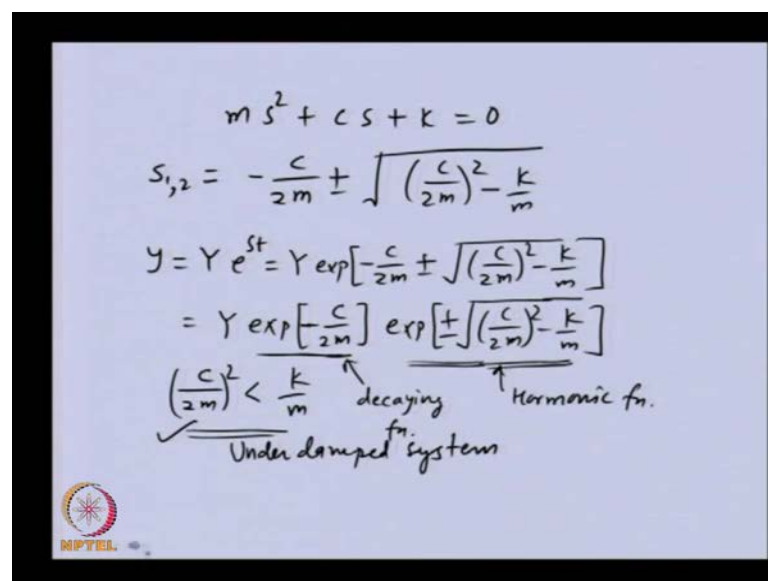 m s² + c s + k = 0
s₁,₂ = - c/2m ± √((c/2m)² - k/m)
y = Y e^{st} = Y exp[-c/2m ± √((c/2m)² - k/m)]
= Y exp[-c/2m] exp[±√((c/2m)² - k/m)]
(c/2m)² < k/m
decaying fn.
Harmonic fn.
Under damped system
NPTEL